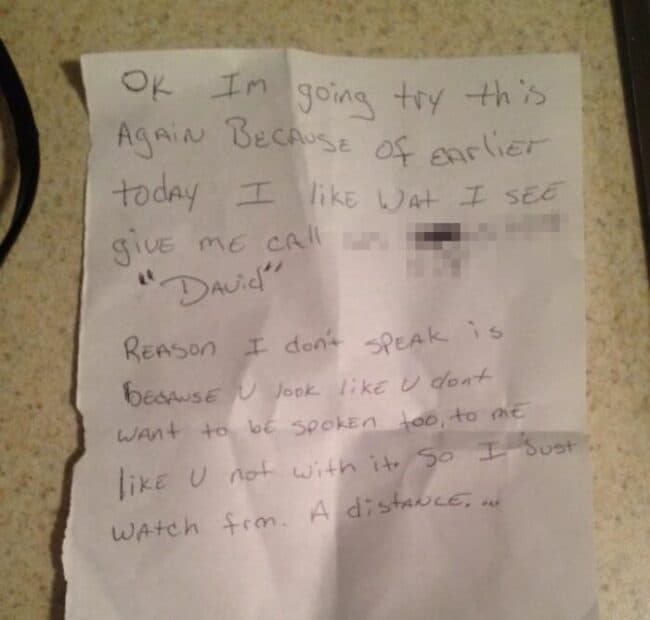 OK Im going try this
AGAIN BECAUSE OF EARliER
today I likE WAt I SEE
givE ME CAll
"DAVid"
REASON I don't SPEAK is
bECAUSE U look likE U dont
WANt to bE SPOKEN too, to ME
likE U not with it. So I Just
WAtch frm. A distANCE....